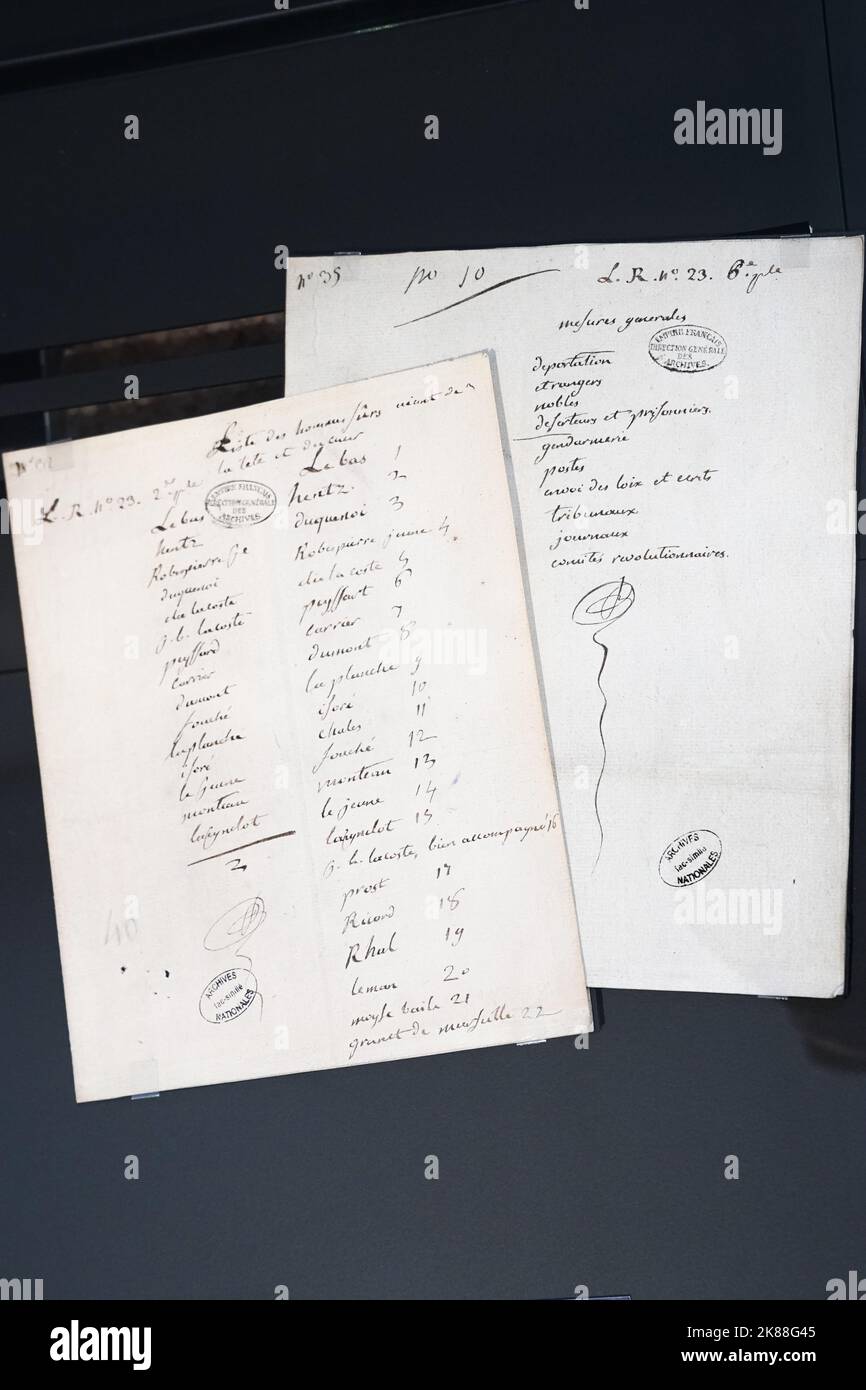 nº 35
no 10
L. R. nº. 23. 6.e p.le
mesures generales
EMPIRE FRANÇAIS
DIRECTION GÉNÉRALE
DES
ARCHIVES.
deportation
etrangers
nobles
deserteurs et prisonniers.
gendarmerie
postes
envoi des loix et ecrits
tribunaux
journaux
comités revolutionnaires.
ARCHIVES
fac-similé
NATIONALES
Liste des hommes surs aiant de
la tete et du cœur
L. R. nº. 23. 2.e p.le
EMPIRE FRANÇAIS
DIRECTION GÉNÉRALE
DES
ARCHIVES.
Lebas
hentz
Robespierre je
duquenoi
elie lacoste
j. b. lacoste
peyssard
carrier
dumont
fouché
laplanche
isoré
le jeune
monteau
laignelot
2
40
ARCHIVES
fac-similé
NATIONALES
Lebas 1
hentz 2
duquenoi 3
Robespierre jeune 4
elie lacoste 5
peyssart 6
carrier 7
dumont 8
la planche 9
isoré 10
chales 11
fouché 12
monteau 13
le jeune 14
laignelot 15
j. b. lacoste, bien accompagné 16
prost 17
Ricord 18
Rhul 19
leman 20
moyse baile 21
granet de merseille 22
alamy
alamy
Image ID: 2K88G45
www.alamy.com